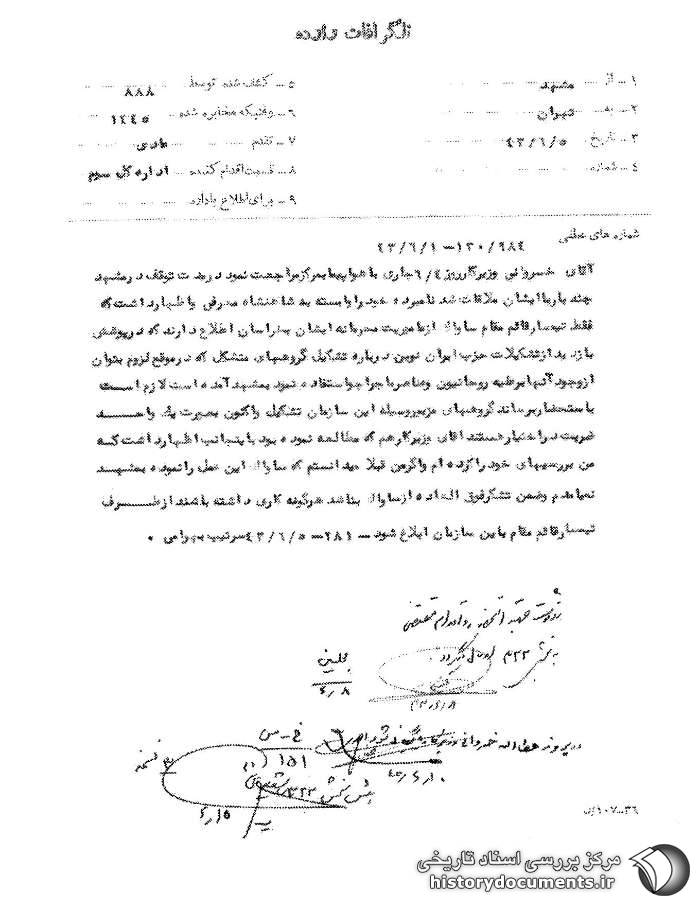 تلگرافات وارده
۱ـ از مشهد
۲ـ به تهران
۳ـ تاریخ ۴۳/۶/۵
۴ـ شماره
۵ـ کشف شده توسط ۸۸۸
۶ـ وقتیکه مخابره شده ۱۲۴۵
۷ـ تقدم عادی
۸ـ قسمت اقدام کننده اداره کل سوم
۹ـ برای اطلاع یا داده
شماره های عطفی
۱۲۰/۹۸۴ – ۴۳/۶/۱
آقای خسروانی وزیر کار روز ۶/۴ جاری با هواپیما بمرکز مراجعت نمود در مدت توقف در مشهد
چند بار با ایشان ملاقات شد نامبرده خود را وابسته به شاهنشاه معرفی و اظهار داشت که
فقط تیمسار قائم مقام ساواک از ماموریت محرمانه ایشان بخراسان اطلاع دارند که در پوشش
بازدید از تشکیلات حزب ایران نوین درباره تشکیل گروههای متشکل که در موقع لزوم بتوان
از وجود آنها برعلیه روحانیون و عناصر ماجراجو استفاده نمود بمشهد آمده است لازم است
باستحضار برساند گروههای مزبور وسیله این سازمان تشکیل واکنون بصورت یک واحد
ضربت در اختیار هستند آقای وزیر کار هم که مطالعه نموده بود باینجانب اظهار داشت که
من بررسیهای خود را کرده ام و اگر من قبلا میدانستم که ساواک این عمل را نموده بمشهد
نمیآمدم وضمن تشکر فوق العاده از ساواک بناشد هرگونه کاری داشته باشند از طرف
تیمسار قائم مقام باین سازمان ابلاغ شود – ۲۸۱ – ۴۳/۶/۵ سرتیپ بهرامی .
به بخش ۳۲۲ ارسال گردد.
۶/۸
۴۳/۶/۸
در پرونده عطااله خسروانی
۱۵۱
۴۳/۶/۱۰
رئیس بخش ۳۲۲
۳ نسخه
۶/۱۵
۳۶-۱۰۷
مرکز بررسی اسناد تاریخی
historydocuments.ir